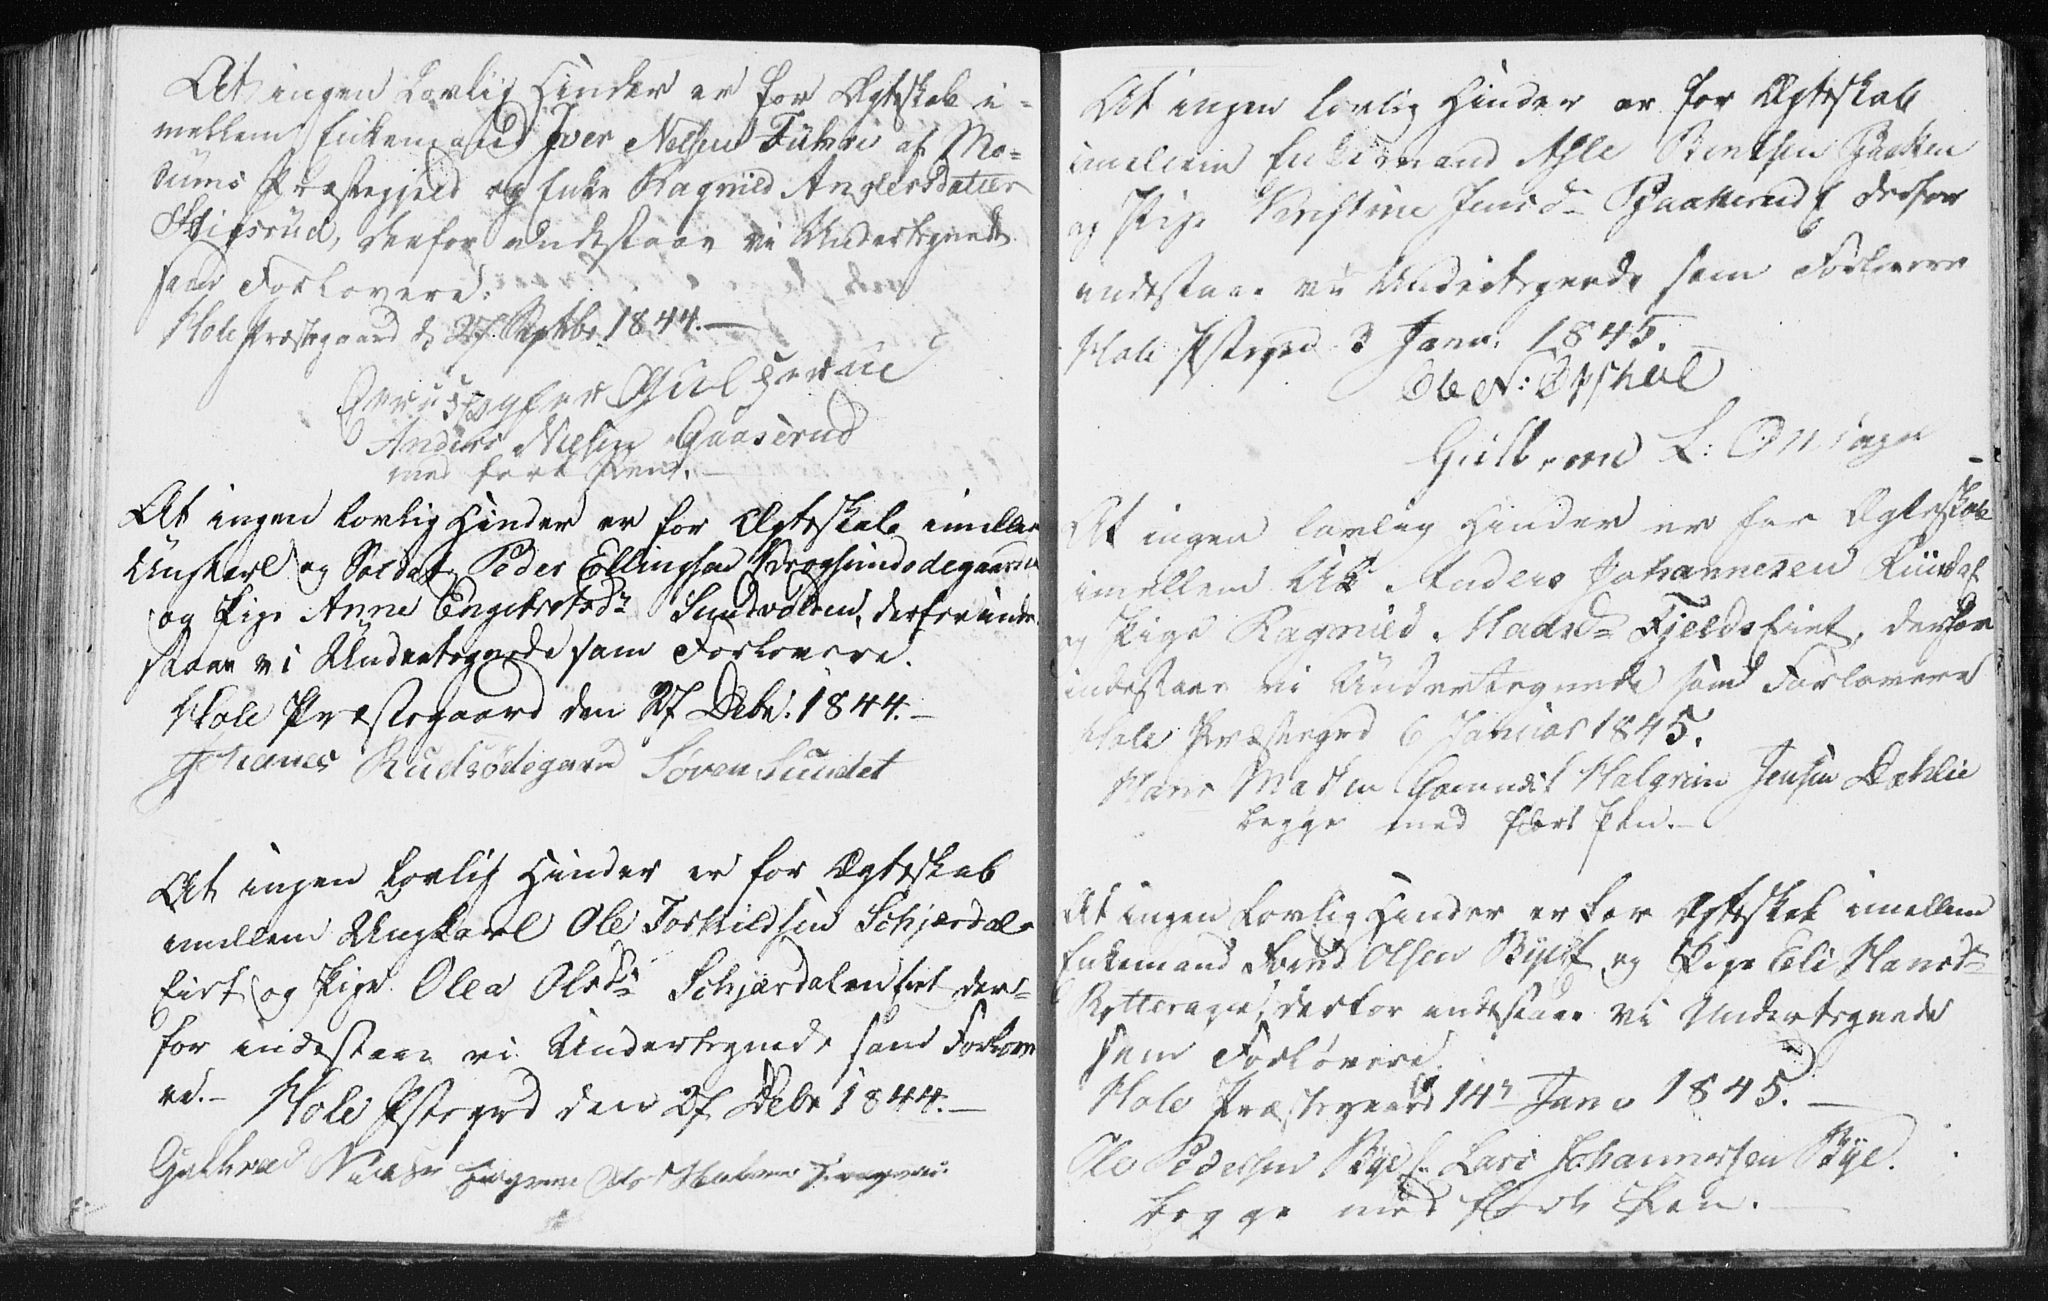 At ingen Lovlig Hinder er for Ægteskab i-
mellem Enkemand Iver Nelsen Fuhre af Mo-
dums Præstegjeld og Enke Ragnild
derfor indestaae vi Undertegnede
som Forlovere.
Hole Præstegaard d. 27 Septbr 1844.—
Anders Nielsen Gaaserud
med ført Pen.—
At ingen lovlig Hinder er for Ægteskab imellem
Ungkarl og Soldat Peder Ellingsen
og Pige Anne Engebretsdr Sundvolden, derfor inde-
staae vi Undertegnede som Forlovere.
Hole Præstegaard den 27 Debr. 1844.—
Johanes Rudsødegaard Søren Sundet
At ingen Lovlig Hinder er for Ægteskab
imellem Ungkarl Ole Torkildsen Schjærdals-
Eiet og Pige Olea Olsdr Schjærdaleneiet der-
for indestaae vi Undertegnede som Forlove-
re.— Hole Pstegrd den 27 Debr 1844.—
Gulbrand
At ingen lovlig Hinder er for Ægteskab
imellem Enkemand Asle Bentsen
og Pige Kristine Jensdr derfor
indestaae vi Undertegnede som Forlovere
Hole Pstegrd 3 Janu. 1845.—
Ole N: Opsahl
Gulbrand L:
At ingen lovlig Hinder er for Ægteskab
imellem Uk Anders Johannesen
og Pige Ragnild Madsdr Fjeldseiet, derfor
indestaae vi Undertegnede som Forlovere
Hole Præstegrd 6 Januar 1845.
Hans Halgrim Jensen Dæhlie
begge med ført Pen.—
At ingen Lovlig Hinder er for Ægteskab imellem
Enkemand Olsen og Pige Eli Hansdr
derfor indestaae vi Undertegnede
som Forlovere.
Hole Præstegaard 14r Janu 1845.—
Ole Pedersen Bye Lars Johannessen Bye.
begge med ført Pen.—